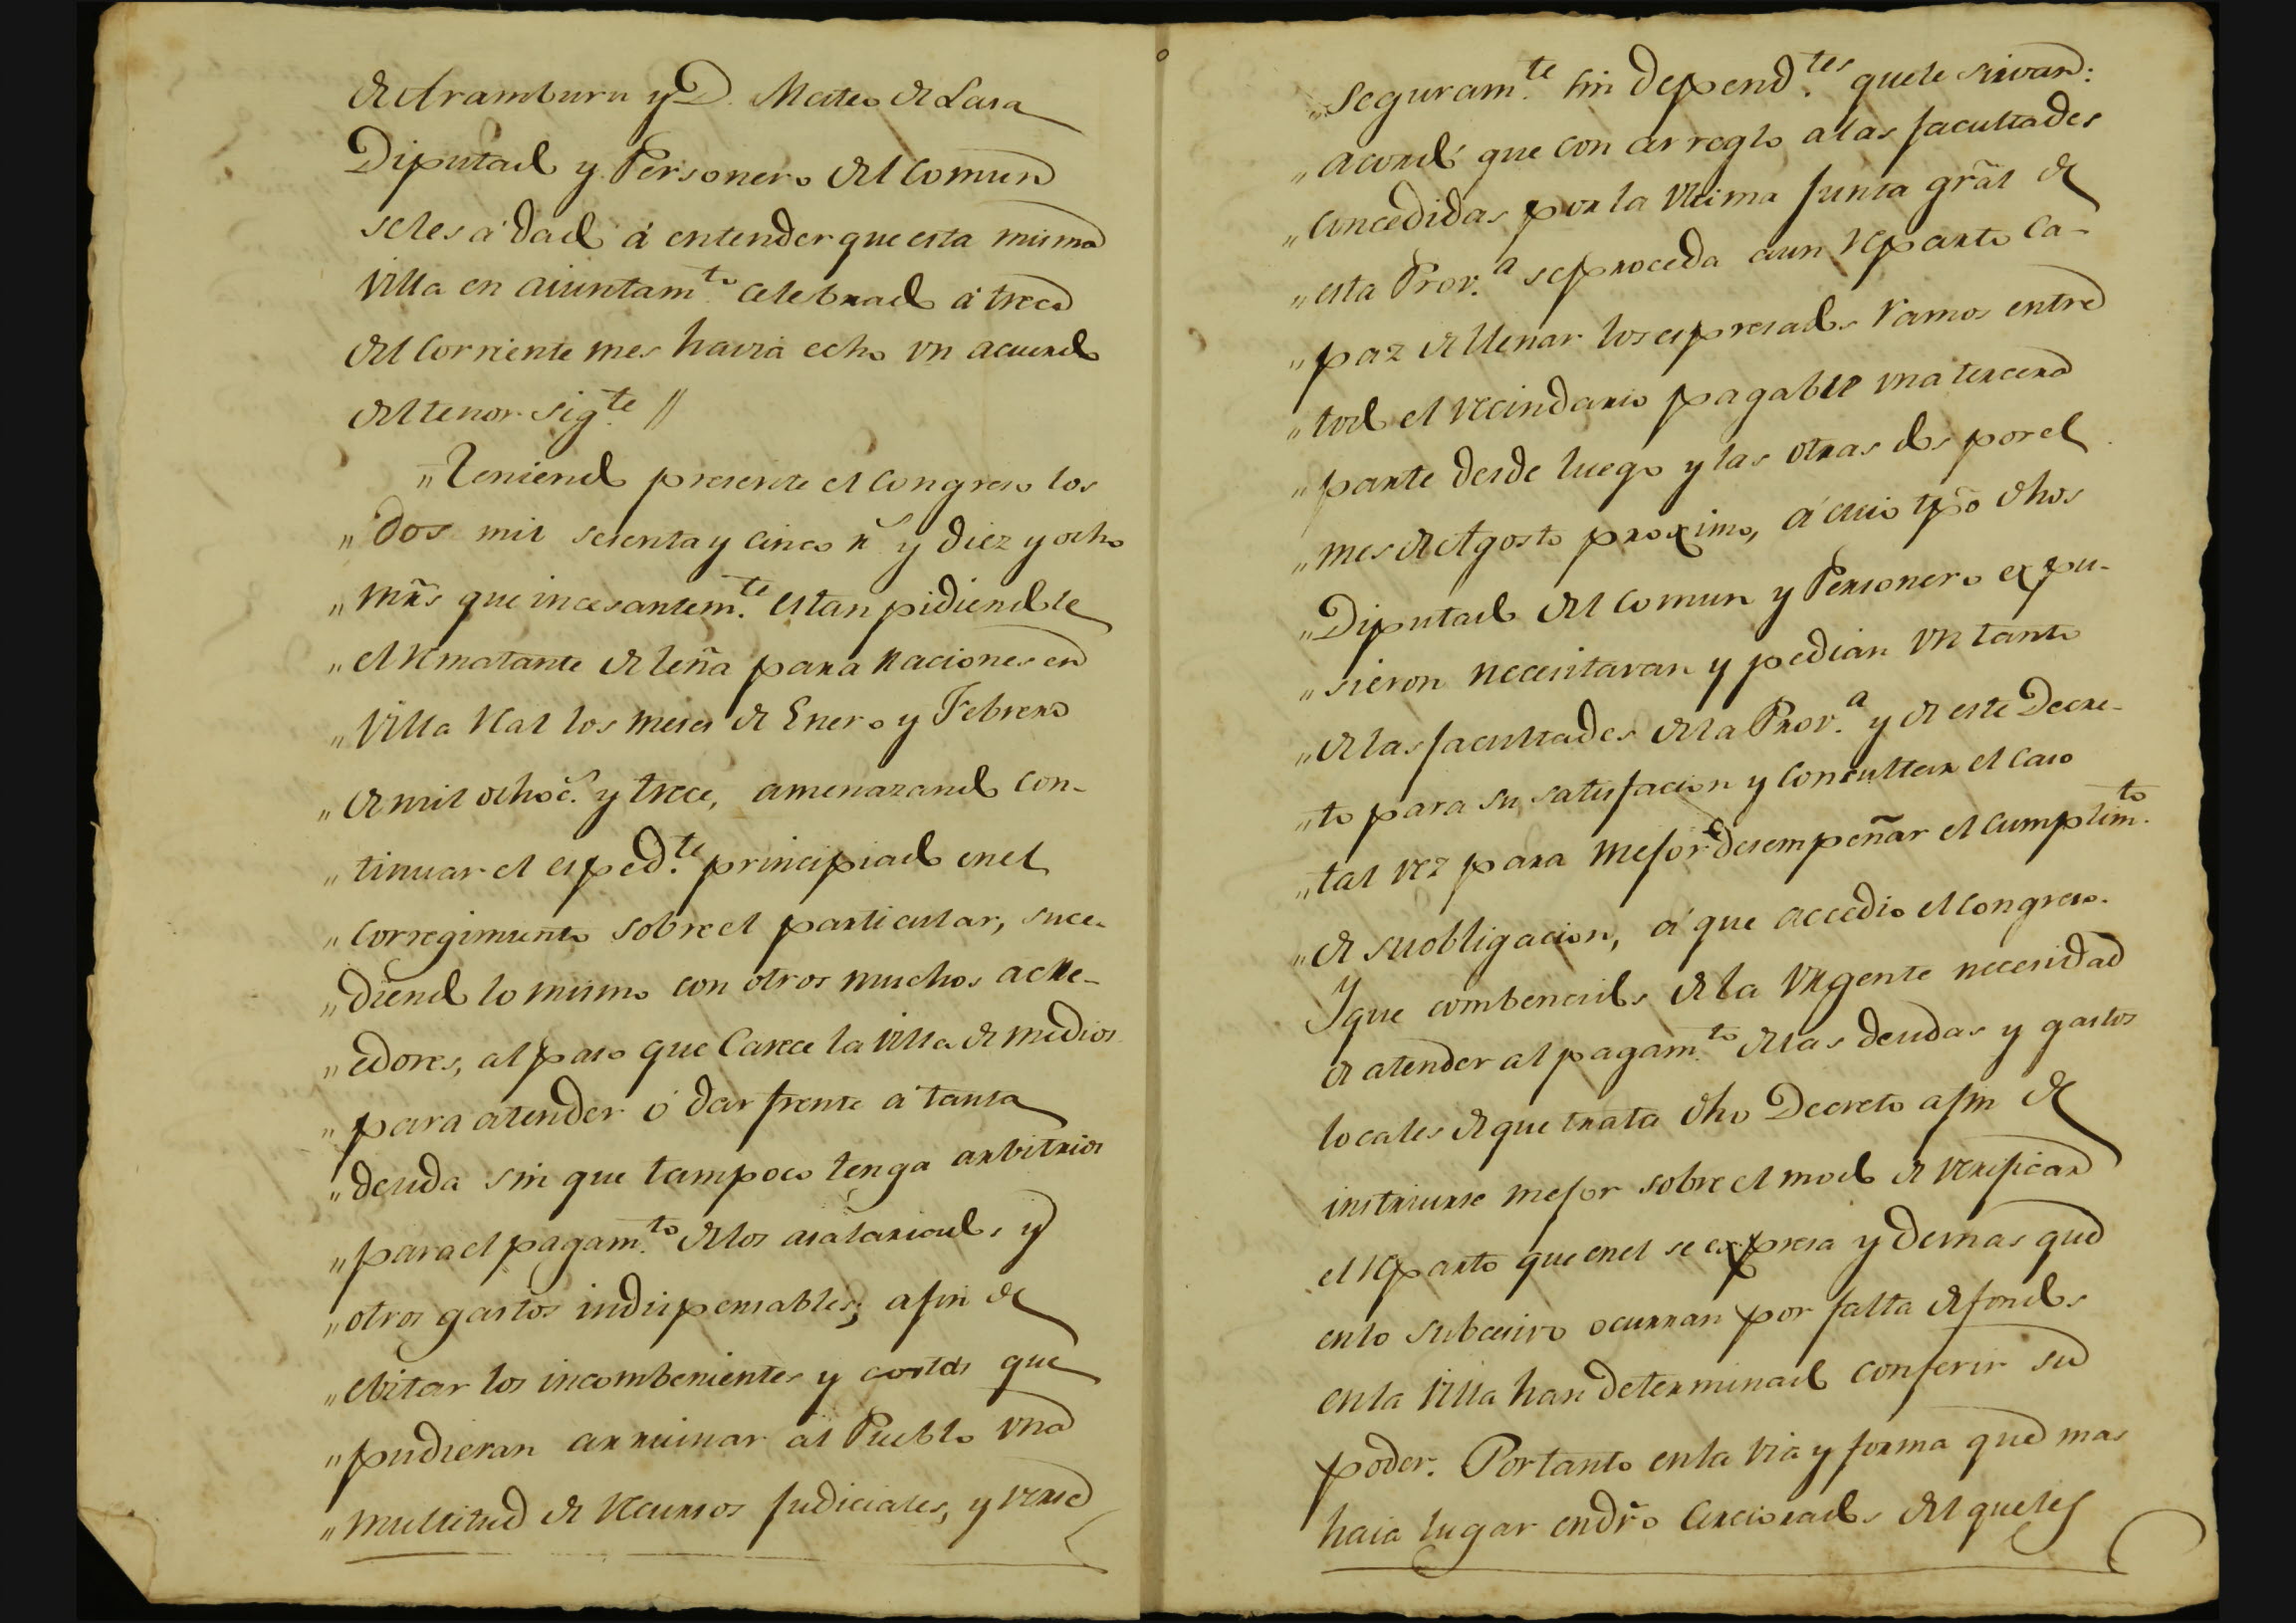 de Aramburu y D. Mateo de Lasa
Diputado y Personero del comun
seles á dado á entender que esta misma
Villa en aiuntam.to celebrado á trece
del corriente mes havia echo un acuerdo
del tenor sig.te //
„Teniendo presente el congreso los
„Dos mil sesenta y cinco r.s y diez y ocho
„mrs̃ que incesantem.te estan pidiendole
„el rematante de leña para raciones en
„Villa Real los meses de Enero y Febrero
„de mil ochoc.s y trece, amenazando con-
„tinuar el esped.te principiado en el
„corregimiento sobre el particular, suce-
„diendo lo mismo con otros muchos acre-
„edores, al paso que Carece la Villa de medios
„para atender ó dar frente á tanta
„deuda sin que tampoco tenga arbitrios
„para el pagam.to de los asalariados y
„otros gastos indispensables; afin de
„ebitar los incombenientes y costas que
„pudieran arruinar al Pueblo una
„multitud de recursos Judiciales, y verse
„Seguram.te sin depend.tes que le sirvan:
„acordó que con arreglo a las facultades
„concedidas por la Ultima Junta grãl de
„esta Prov.a se proceda a un reparto ca-
„paz de llenar los espresados ramos entre
„todo el vecindario pagable una tercera
„parte desde luego y las otras dos por el
„mes de Agosto proximo, á cuio tpõ dhos
„Diputado del comun y Personero expu-
„sieron necesitavan y pedian un tanto
„de las facultades de la Prov.a y de este Decre-
„to para su satisfacion y consultar el caso
„tal vez para mejor desempeñar el cumplim.to
„de su obligacion, á que accedio el congreso.
Y que combencidos de la Urgente necesidad
de atender al pagam.to de las deudas y gastos
locales de que trata dho Decreto afin de
instruirse mejor sobre el modo de verificar
el reparto que en el se expresa y demas que
en lo subcesivo ocurran por falta de fondos
en la Villa han determinado conferir su
poder. Por tanto en la via y forma que mas
haia lugar en drõ cerciorados del que les